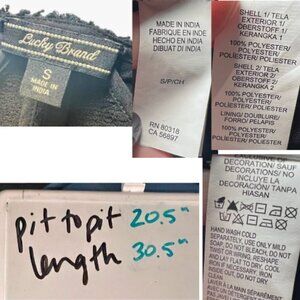 Lucky Brand
S
MADE IN
INDIA
MADE IN INDIA
FABRIQUE EN INDE
HECHO EN INDIA
DIBUAT DI INDIA
S/P/CH
RN 80318
CA 56897
SHELL 1/ TELA
EXTERIOR 1/
OBERSTOFF 1/
KERANGKA 1
100% POLYESTER/
POLYESTER/POLIÉSTER/
POLIESTER
SHELL 2/ TELA
EXTERIOR 2/
OBERSTOFF 2/
KERANGKA 2
100% POLYESTER/
POLYESTER/
POLIÉSTER/POLIESTER
LINING/DOUBLURE/
FORRO/ PELAPIS
100% POLYESTER/
POLYESTER/
POLIÉSTER/POLIESTER
pit to pit 20.5"
length 30.5"
EXCLUSIVE OF
DECORATION/ SAUF
DÉCORATIONS/ NO
INCLUYE LA
DECORACIÓN/TANPA
HIASAN
HAND WASH COLD
SEPARATELY, USE ONLY MILD
SOAP. DO NOT BLEACH. DO NOT
TWIST OR WRING, RESHAPE
AND LAY FLAT TO DRY. COOL
IRON IF NECESSARY. IRON
INSIDE OUT. DO NOT DRY
CLEAN.
LAVER À LA MAIN SÉPARÉMENT